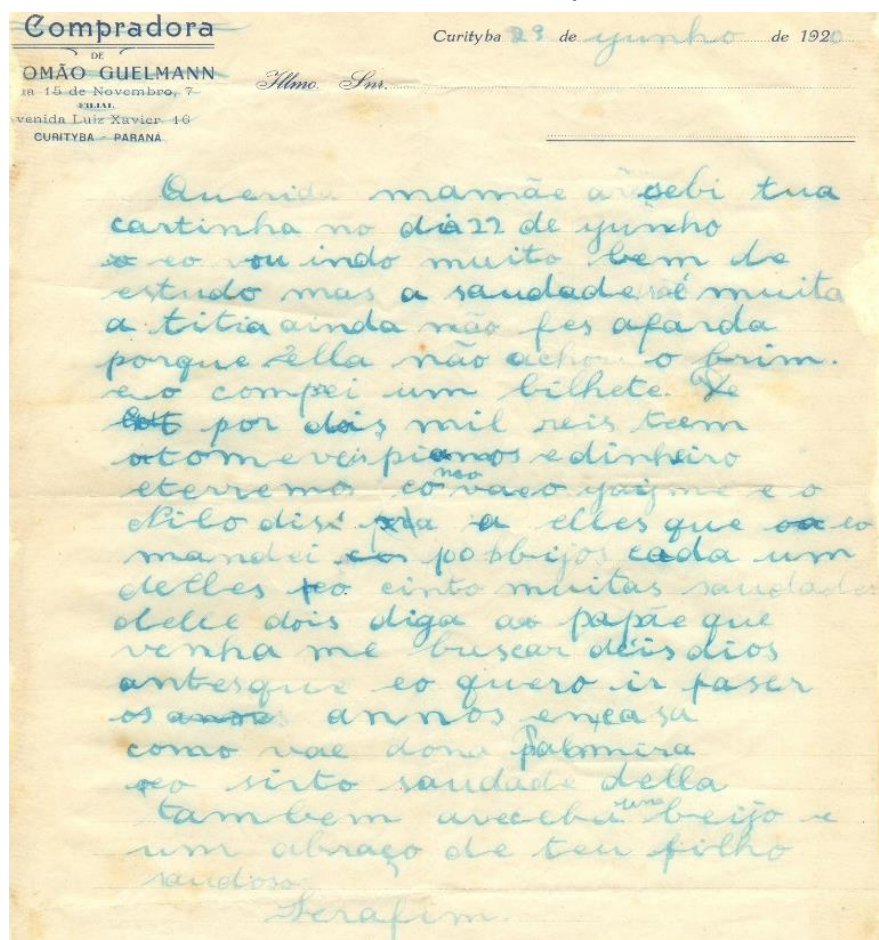 Compradora
DE
OMÃO GUELMANN
15 de Novembro, 7
FILIAL
venida Luiz Xavier 16
CURITYBA - PARANÁ
Curityba 29 de yunho de 1920
Illmo. Snr.
Querida mamãe a sebi tua
cartinha no dia 22 de yunho
eo vou indo muito bem de
estudo mas a saudade é muita
a titia ainda não fes afarda
porque ella não achou o brim.
eo compei um bilhete. De
por dois mil reis teem
atomeveis pianos e dinheiro
eterremos co vaeo e o
Nilo a elles que eo
mandei beijos cada um
delles eo cinto muitas saudades
delle dois diga ao papãe que
venha me buscar déis dios
antesque eo quero ir faser
os annos em casa
como vae dona Palmira
eo sinto saudade della
tambem um beijo e
um abraço de teu filho
saudoso
Serafim.